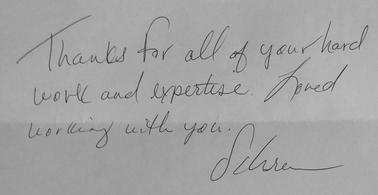 Thanks for all of your hard
work and expertise. Loved
working with you.